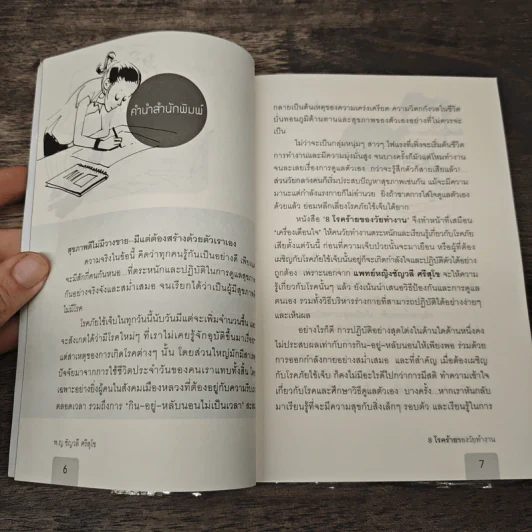 คำนำสำนักพิมพ์
สุขภาพดีไม่มีวางขาย-มีแต่ต้องสร้างด้วยตัวเราเอง
ความจริงในข้อนี้ คิดว่าทุกคนรู้กันเป็นอย่างดี เพียง
จะมีสักกี่คนกันหนอ...ที่ตระหนักและปฏิบัติในการดูแลสุขภาพ
กันอย่างจริงจังและสม่ำเสมอ จนเรียกได้ว่าเป็นผู้มีสุขภาพ
ไม่มีโรค
โรคภัยไข้เจ็บในทุกวันนี้นับวันมีแต่จะเพิ่มจำนวนขึ้น และ
จะสังเกตได้ว่ามีโรคใหม่ๆ ที่เราไม่เคยรู้จักอุบัติขึ้นมาเรื่อย
แต่สาเหตุของการเกิดโรคต่างๆ นั้น โดยส่วนใหญ่มักมีสาเหตุ
ปัจจัยมาจากการใช้ชีวิตประจำวันของคนเราแทบทั้งสิ้น โดย
เฉพาะอย่างยิ่งผู้คนในสังคมเมืองหลวงที่ต้องอยู่กับความเร่ง
ตลอดเวลา รวมถึงการ "กิน-อยู่-หลับนอนไม่เป็นเวลา"
พ.ญ. ชัญวลี ศรีสุโข
6
กลายเป็นต้นเหตุของความเคร่งเครียด ความวิตกกังวลในชีวิต
บั่นทอนภูมิต้านทานและสุขภาพของตัวเองอย่างที่ไม่ควรจะ
เป็น
ไม่ว่าจะเป็นกลุ่มหนุ่มๆ สาวๆ ไฟแรงที่เพิ่งจะเริ่มต้นชีวิต
การทำงานและมีความมุ่งมั่นสูง จนบางครั้งก็มัวแต่โหมทำงาน
จนละเลยเรื่องการดูแลตัวเอง กว่าจะรู้สึกตัวก็สายเสียแล้ว!
ส่วนวัยกลางคนก็เริ่มประสบปัญหาสุขภาพเช่นกัน แม้จะมีความ
มานะแต่กำลังแรงกายก็ไม่อำนวย ยิ่งถ้าขาดการใส่ใจดูแลตัวเอง
ด้วยแล้ว ย่อมหลีกเลี่ยงโรคภัยไข้เจ็บได้ยาก
หนังสือ "8 โรคร้ายของวัยทำงาน" จึงทำหน้าที่เสมือน
"เครื่องเตือนใจ" ให้คนวัยทำงานตระหนักและเรียนรู้เกี่ยวกับโรคภัย
เสียตั้งแต่วันนี้ ก่อนที่ความเจ็บป่วยนั้นจะมาเยือน หรือผู้ที่ต้อง
เผชิญกับโรคภัยไข้เจ็บนั้นอยู่ก็จะเกิดกำลังใจและปฏิบัติตัวได้อย่าง
ถูกต้อง เพราะนอกจาก แพทย์หญิงชัญวลี ศรีสุโข จะให้ความ
รู้เกี่ยวกับโรคนั้นๆ แล้ว ยังเน้นนำเสนอวิธีป้องกันและการดูแล
ตนเอง รวมทั้งวิธีบริหารร่างกายที่สามารถปฏิบัติได้อย่างง่ายๆ
และเห็นผล
อย่างไรก็ดี การปฏิบัติอย่างสุดโต่งในด้านใดด้านหนึ่งคง
ไม่ประสบผลเท่ากับการกิน-อยู่-หลับนอนให้เพียงพอ ร่วมด้วย
การออกกำลังกายอย่างสม่ำเสมอ และที่สำคัญ เมื่อต้องเผชิญ
กับโรคภัยไข้เจ็บ ก็คงไม่มีอะไรดีไปกว่าการมีสติ ทำความเข้าใจ
เกี่ยวกับโรคและศึกษาวิธีดูแลตัวเอง บางครั้ง...หากเราหันกลับ
มาเรียนรู้ที่จะมีความสุขกับสิ่งเล็กๆ รอบตัว และเรียนรู้ในการ
8 โรคร้ายของวัยทำงาน
7